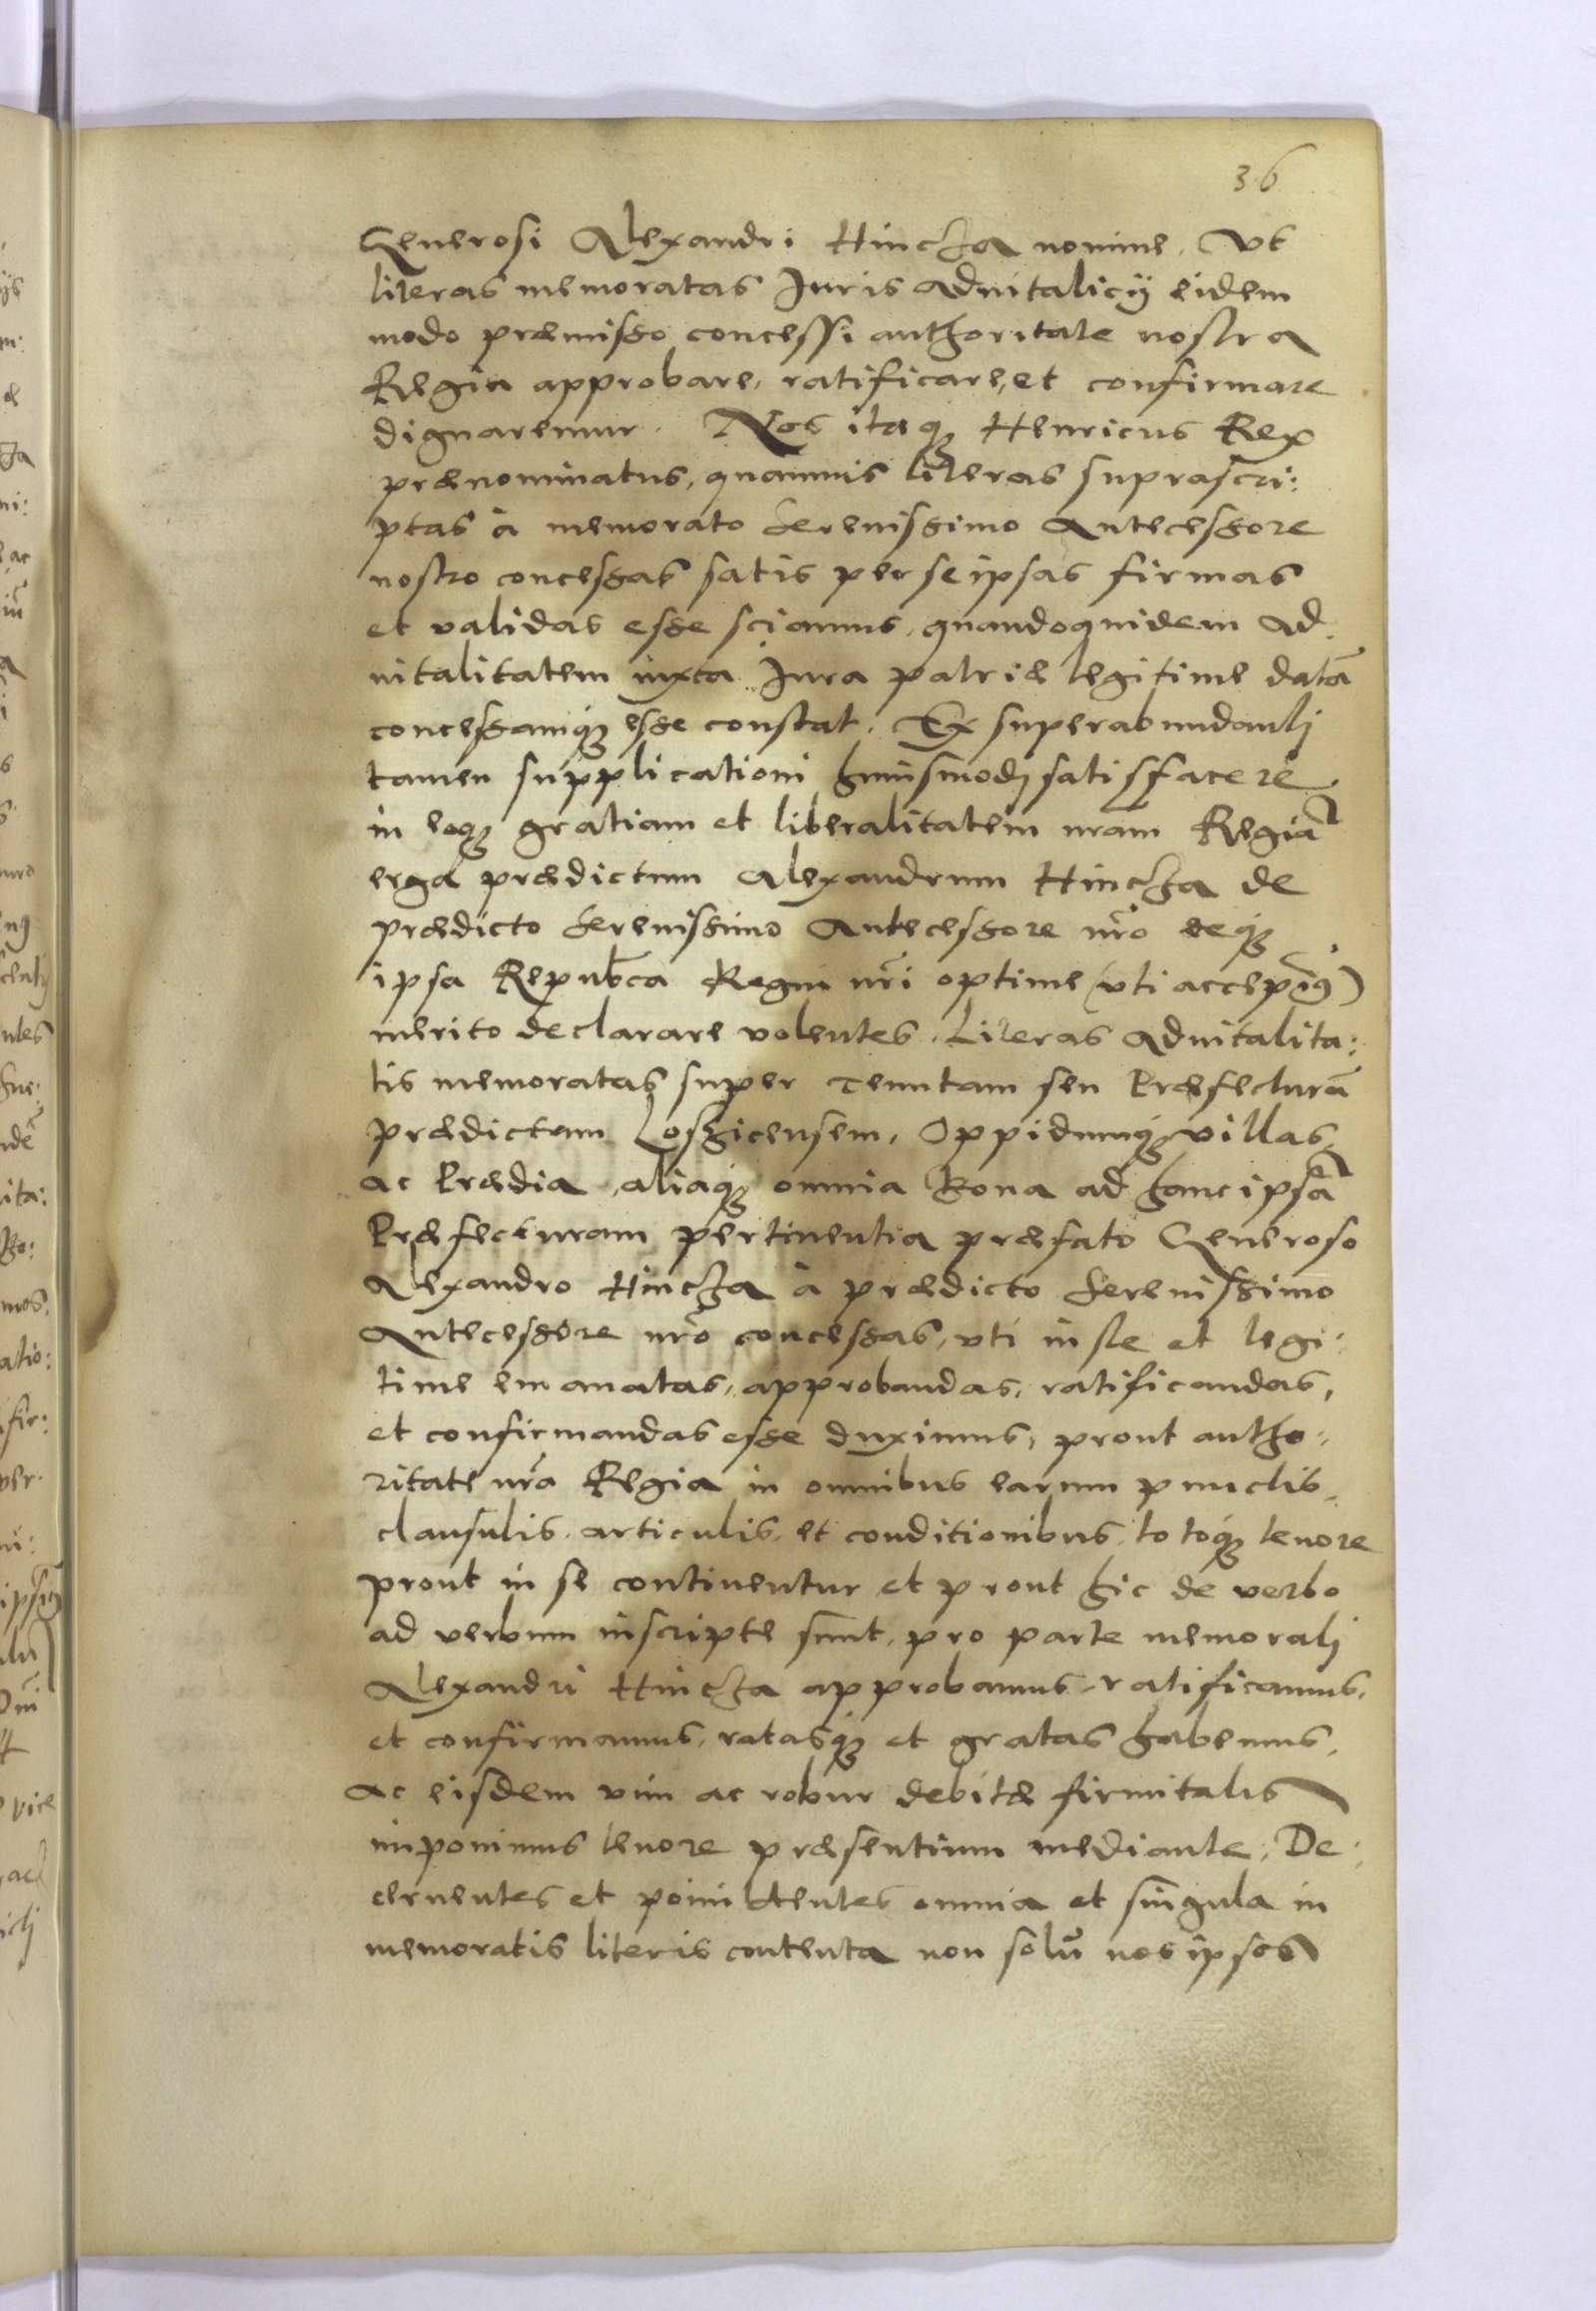 36
Generosi Alexandri Hincza nomine. Vt
literas memoratas Juris aduitalicij eidem
modo præmisso concessi authoritate nostra
Regia approbare, ratificare, et confirmare
dignaremur. Nos itaq3 Henricus Rex
prænominatus, quamuis literas suprascri:
ptas à memorato Serenissimo Antecessore
nostro concessas satis per se ipsas firmas
et validas esse sciamus, quandoquidem ad
uitalitatem iuxta Jura patriæ legitime datā
concessamq3 esse constat. Ex superabundanti
tamen supplicationi huiusmodi satisfacere
in eoq3 gratiam et liberalitatem nram Regiā
erga prædictum Alexandrum Hincza de
prædicto Serenissimo Antecessore nrō eeq3
ipsa Repubca Regni nri optime (vti accepim9)
merito declarare volentes. Literas aduitalita:
tis memoratas super tenutam seu Præfecturā
prædictam Losicensem, Oppidumq3 villas
ac Prædia, aliaq3 omnia Bona ad hanc ipsā
Præfecturam pertinentia præfato Generoso
Alexandro Hincza à prædicto Serenissimo
Antecessore nrō concessas, vti iuste et legi:
time emanatas, approbandas, ratificandas,
et confirmandas esse duximus, prout autho:
ritate nrā Regia in omnibus earum punctis,
clausulis, articulis, et conditionibus, totoq3 tenore
prout in se continentur et prout hic de verbo
ad verbum inscriptæ sunt, pro parte memorati
Alexandri Hincza approbamus, ratificamus,
et confirmamus, ratasq3 et gratas habemus,
ac eisdem vim ac robur debitæ firmitatis
imponimus tenore præsentium mediante. De:
cernentes et omnia et singula in
memoratis literis contenta non solū nos ipsos